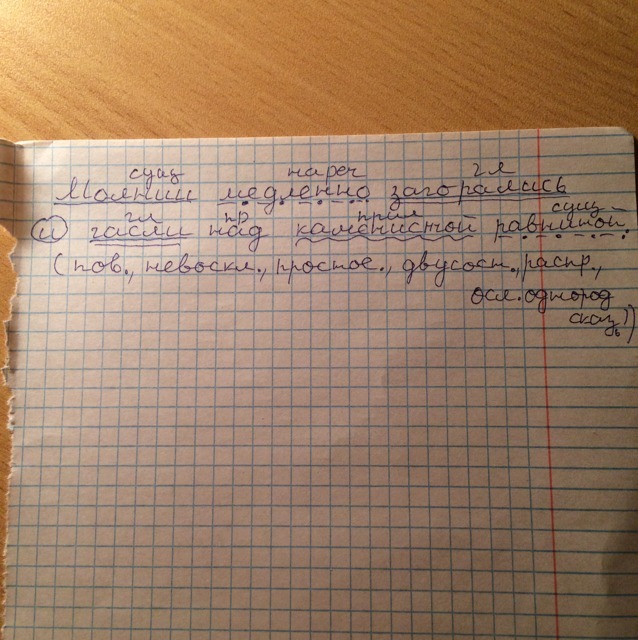 сущ нареч гл
Молнии медленно загорались
гл пр прил сущ
и гасли над каменистой равниной.
(пов., невоскл., простое., двусост., распр.,
осл. однород
сказ))